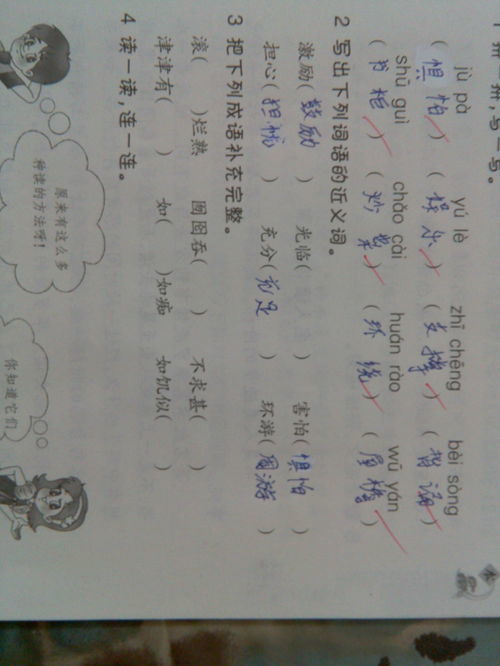 拼一拼,写一写。
jù pà yú lè zhī chēng bèi sòng
(惧怕)(娱乐)(支撑)(背诵)
shū guì chǎo cài huán rào wū yán
(书柜)(炒菜)(环绕)(屋檐)
2 写出下列词语的近义词。
激励(鼓励) 光临( ) 害怕(惧怕)
担心(担忧) 充分(充足) 环游(周游)
3 把下列成语补充完整。
滚( )烂熟 囫囵吞( ) 不求甚( )
津津有( ) 如( )如痴 如饥似( )
4 读一读,连一连。
原来有这么多
种读的方法呀!
你知道它们